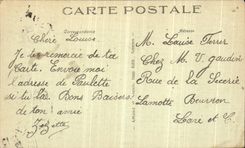 CARTE POSTALE
Correspondance
Adresse
Chère Louise
Je te remercie de ta
Carte. Envoie moi
l'adresse de Paulette
si tu l'as. Bons Baisers
de ton amie
Zézette
M. Louise Ferrer
Chez M. V. gaudin
Rue de la Sucrerie
Lamotte Beuvron
Loire et C.